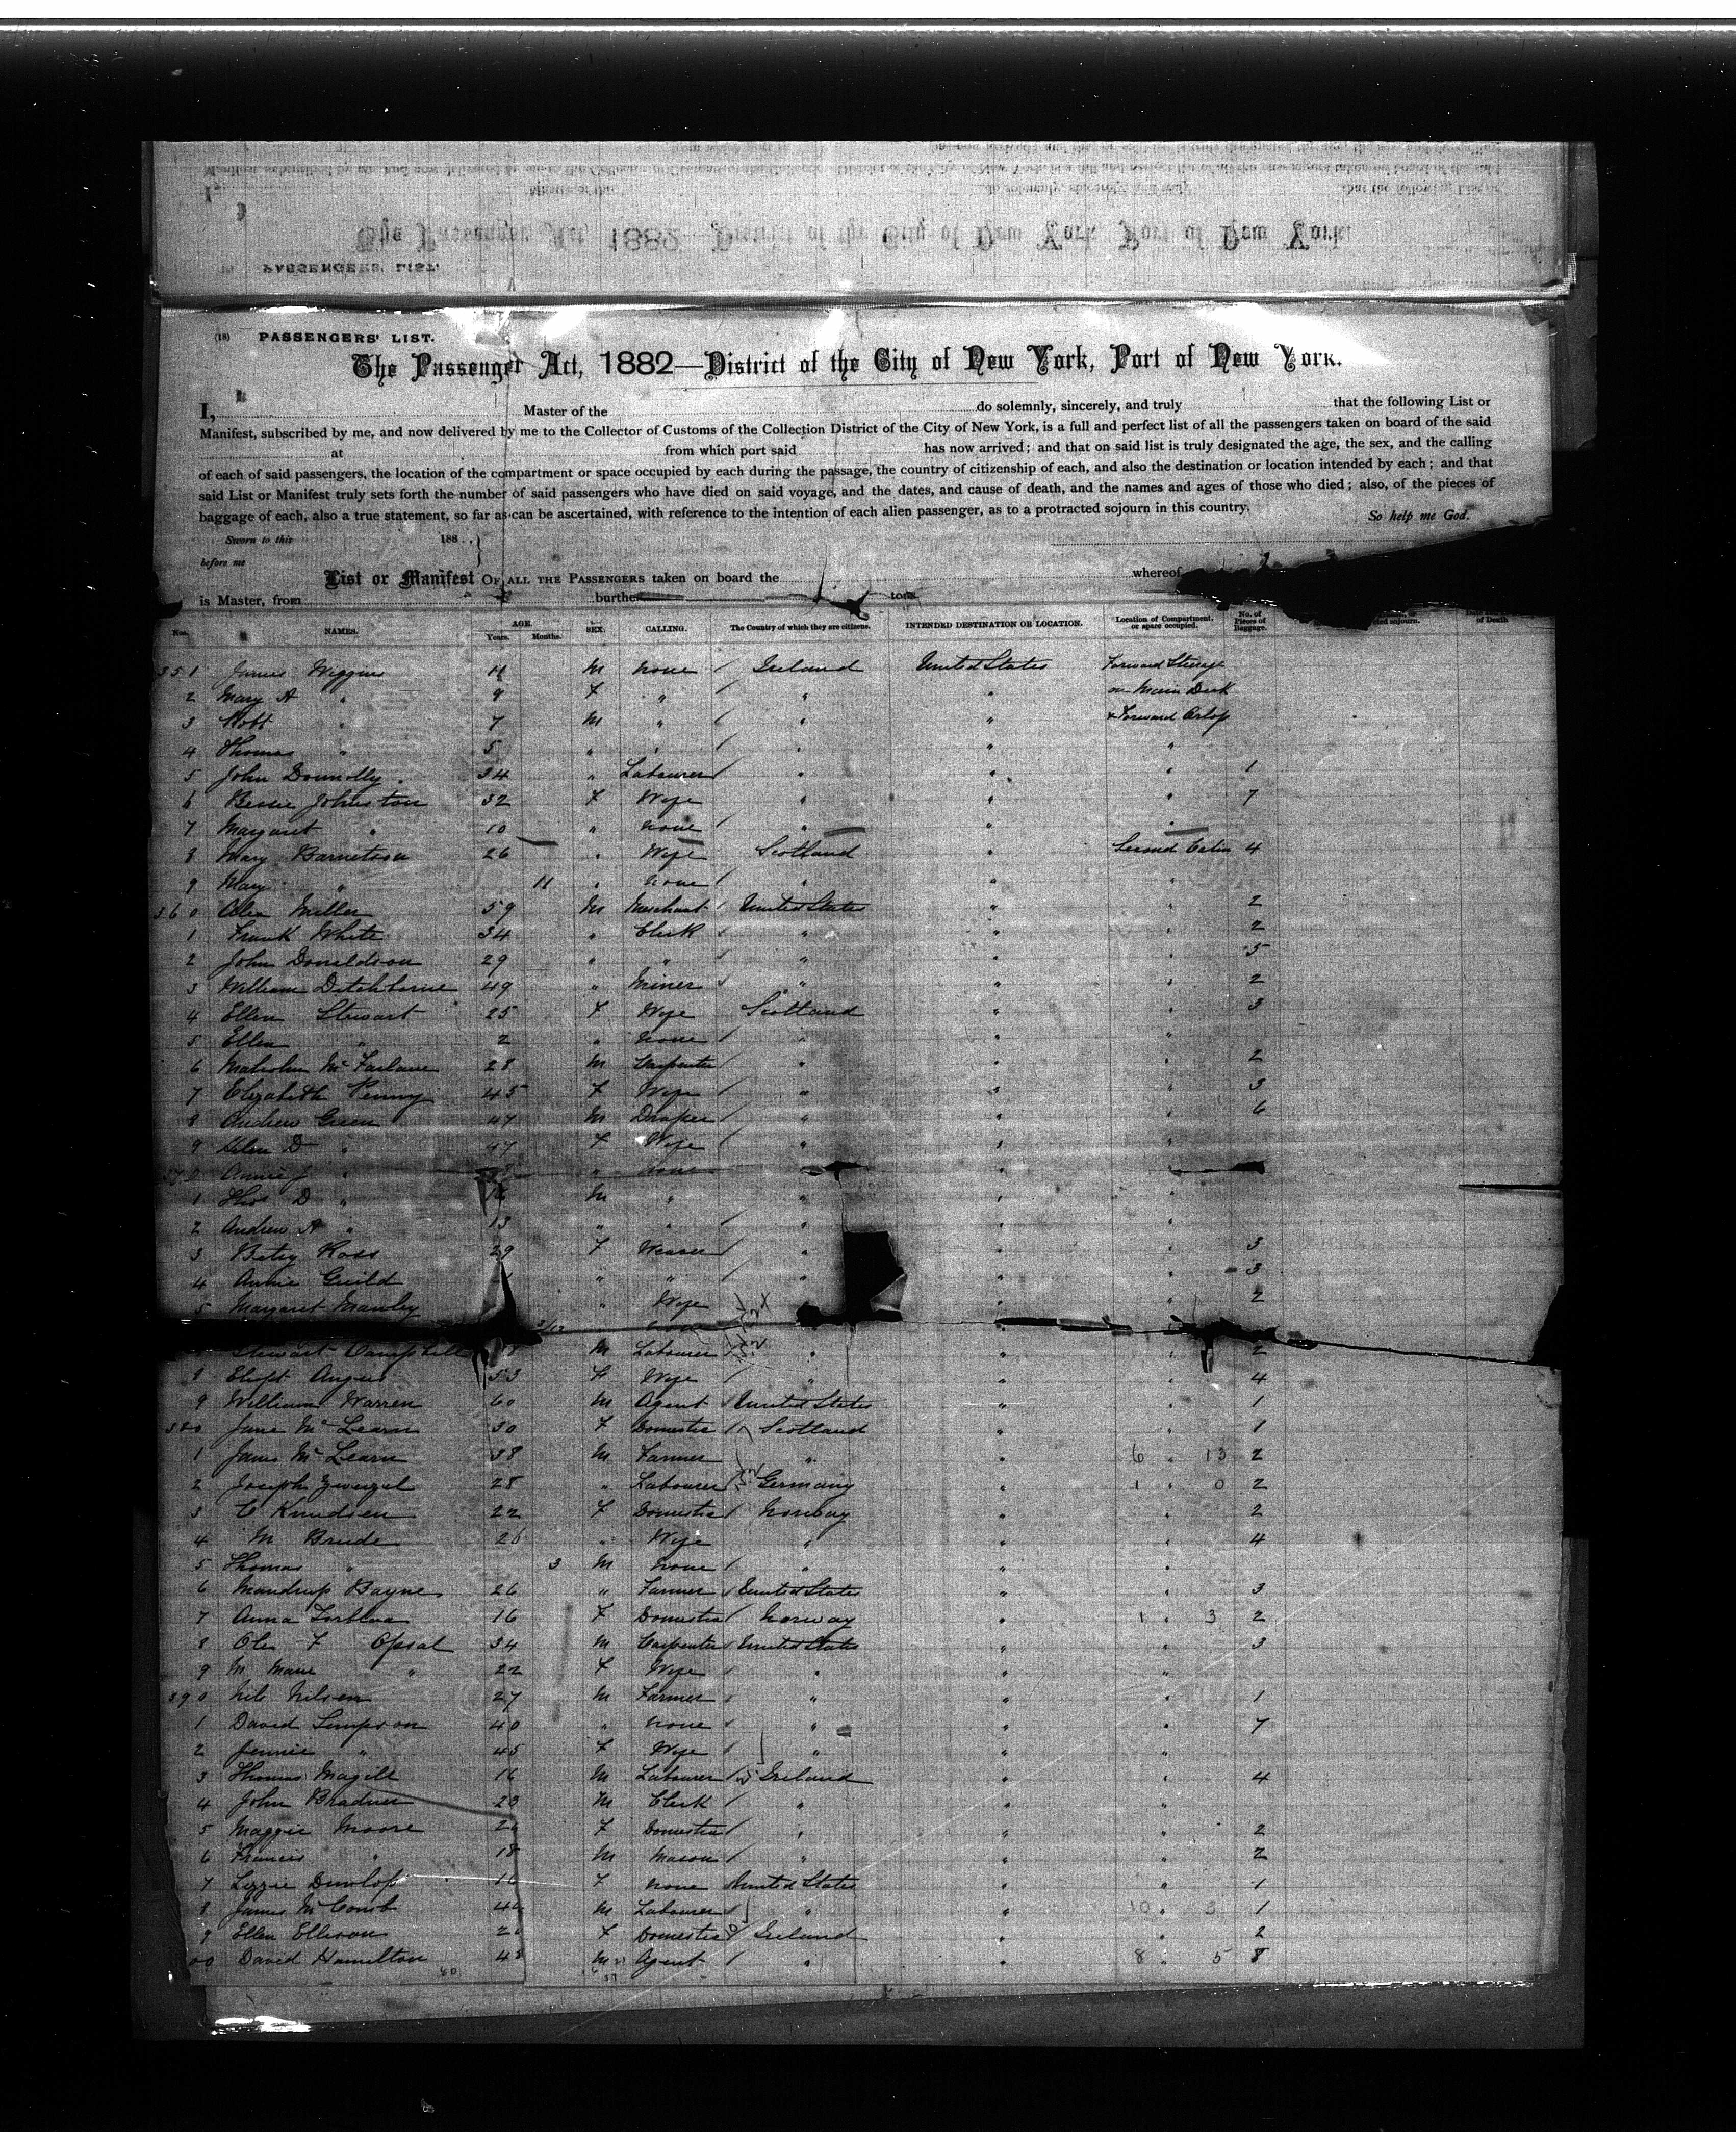 (18) PASSENGERS' LIST.
The Passenger Act, 1882—District of the City of New York, Port of New York.
I, Master of the do solemnly, sincerely, and truly that the following List or
Manifest, subscribed by me, and now delivered by me to the Collector of Customs of the Collection District of the City of New York, is a full and perfect list of all the passengers taken on board of the said
at from which port said has now arrived; and that on said list is truly designated the age, the sex, and the calling
of each of said passengers, the location of the compartment or space occupied by each during the passage, the country of citizenship of each, and also the destination or location intended by each; and that
said List or Manifest truly sets forth the number of said passengers who have died on said voyage, and the dates, and cause of death, and the names and ages of those who died; also, of the pieces of
baggage of each, also a true statement, so far as can be ascertained, with reference to the intention of each alien passenger, as to a protracted sojourn in this country. So help me God.
Sworn to this 188
before me
List or Manifest OF ALL THE PASSENGERS taken on board the whereof
is Master, from burthen tons.
Nos. NAMES. AGE. Years. Months. SEX. CALLING. The Country of which they are citizens. INTENDED DESTINATION OR LOCATION. Location of Compartment, or space occupied. No. of Pieces of Baggage. sojourn. of Death
351 James Wiggins 11 M None Ireland United States Forward Steerage
2 Mary A " 9 F " " " on Main Deck
3 Robt " 7 M " " " & Forward Orlop
4 Thomas " 5 " " " " "
5 John Donnolly 34 " Labourer " " " 1
6 Bessie Johnston 32 F Wife " " " 7
7 Margaret " 10 " None " " "
8 Mary Barnetson 26 " Wife Scotland " Second Cabin 4
9 Mary " 11 " None " " "
360 Alex Miller 59 M Merchant United States " " 2
1 Frank White 34 " Clerk " " " 2
2 John Donaldson 29 " " " " " 5
3 William Ditchburne 49 " Miner " " " 2
4 Ellen Stewart 25 F Wife Scotland " " 3
5 Ellen " 2 " None " " "
6 Malcolm McFarlane 28 M Carpenter " " " 2
7 Elizabeth Penny 45 F Wife " " " 3
8 Andrew Green 47 M Draper " " " 6
9 Helen D " 47 F Wife " " "
370 Annie J " " None " "
1 Thos D " M " " " "
2 Andrew A " 13 " " " " "
3 Betsy Ross 29 F Weaver " " " 3
4 Annie Guild " " " " " 3
5 Margaret Manley " Wife " " " 2
Stewart Campbell M Labourer " " " 2
8 Elizt Angus 53 F Wife " " " 4
9 William Warren 60 M Agent United States " " 1
380 Jane McLearn 30 F Domestic Scotland " " 1
1 James McLearn 38 M Farmer " " 6 " 13 2
2 Joseph Zweigel 28 " Labourer Germany " 1 " 0 2
3 C Knudsen 22 F Domestic Norway " " 2
4 M Brude 26 " Wife " " " 4
5 Thomas " 3 M None " " "
6 Mandrup Bayne 26 " Farmer United States " " 3
7 Anna 16 F Domestic Norway " 1 " 3 2
8 Ole F Opsal 34 M Carpenter United States " " 3
9 M Marie " 22 F Wife " " "
390 Nils Nilsen 27 M Farmer " " " 1
1 David Simpson 40 " None " " " 7
2 Jennie " 45 F Wife " " "
3 Thomas Magill 16 M Labourer Ireland " " 4
4 John Bradner 20 M Clerk " " "
5 Maggie Moore F Domestic " " " 2
6 Francis " 18 M Mason " " " 2
7 Lizzie Dunlop 16 F None United States " " 1
8 James McComb M Labourer " " 10 " 3 1
9 Ellen Ellison F Domestic Ireland " " 2
00 David Hamilton 48 M Agent " " 8 " 5 8